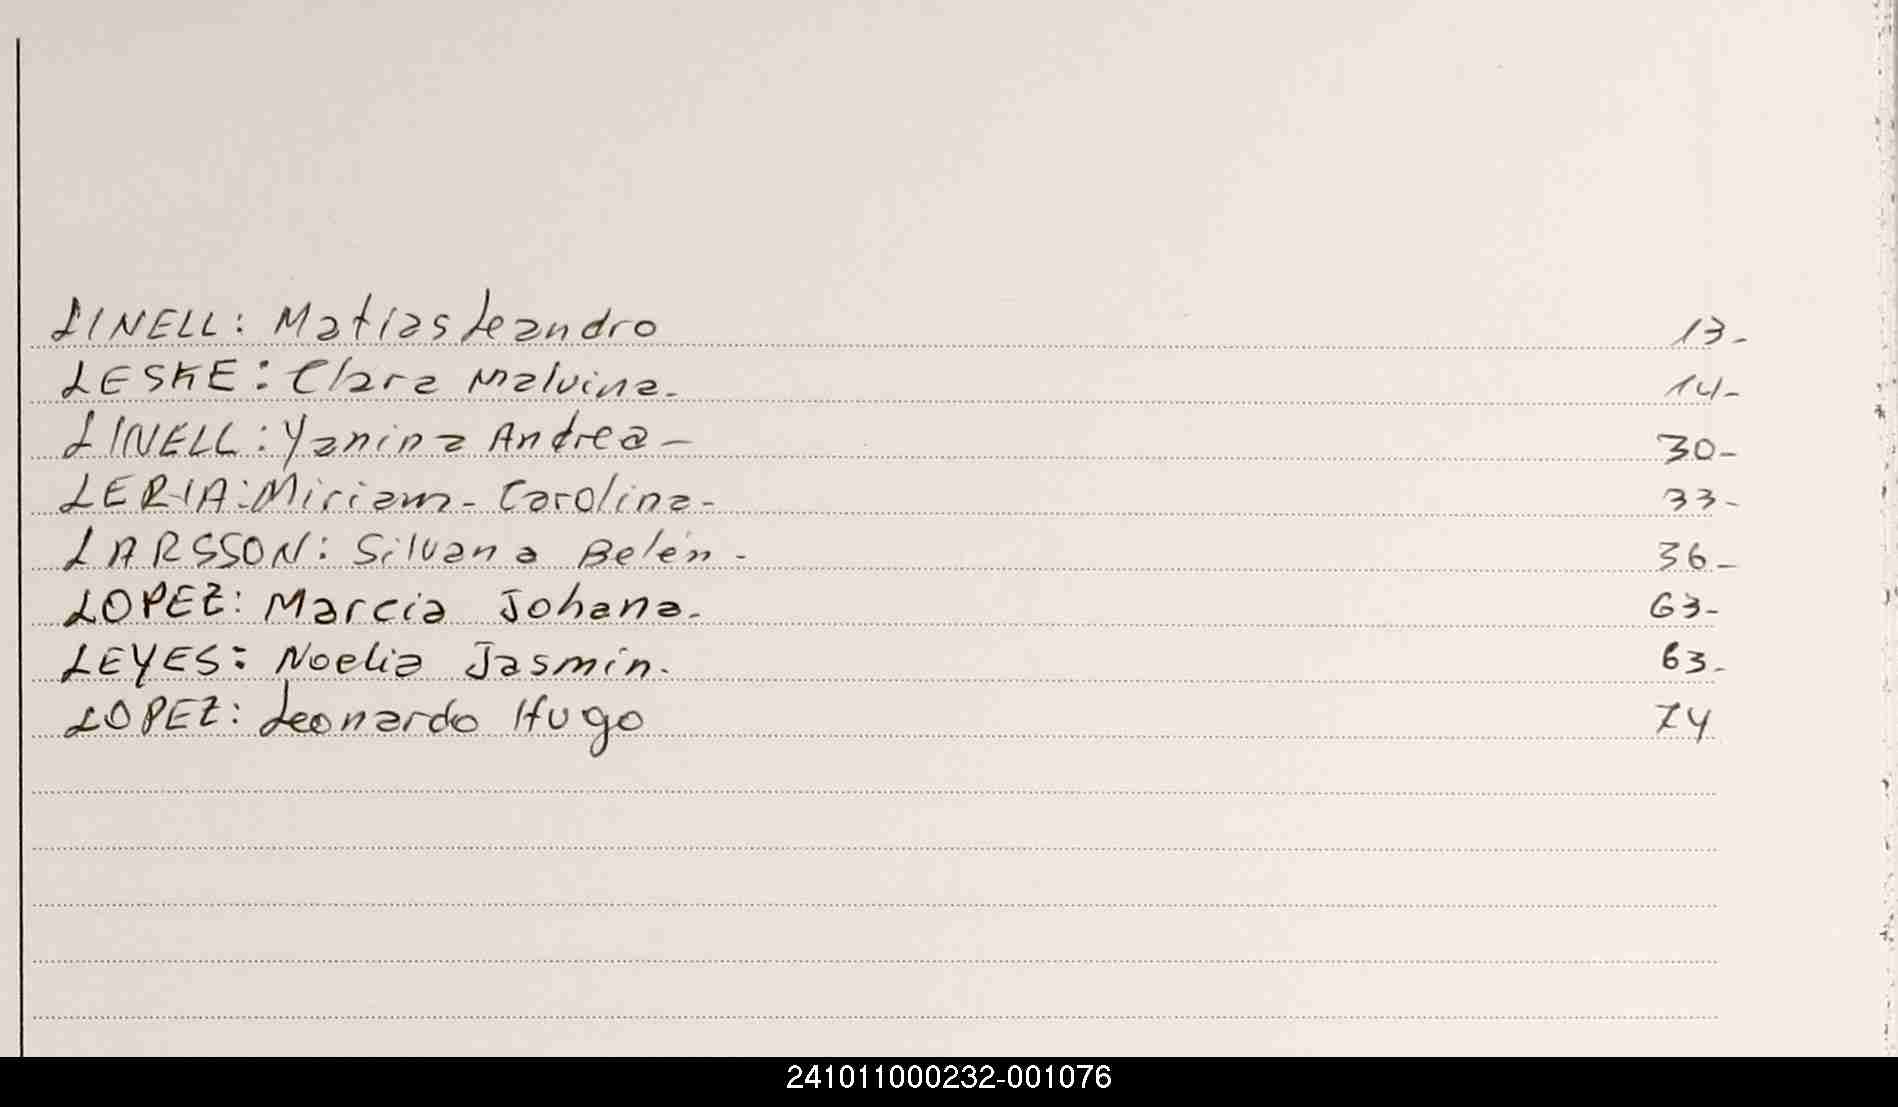 LINELL: Matias Leandro 13-
LESKE: Clara Malvina- 14-
LINELL: Yanina Andrea- 30-
LERIA: Miriam- Carolina- 33-
LARSSON: Silvana Belén- 36-
LOPEZ: Marcia Johana- 63-
LEYES: Noelia Jasmin. 63-
LOPEZ: Leonardo Hugo 74
241011000232-001076